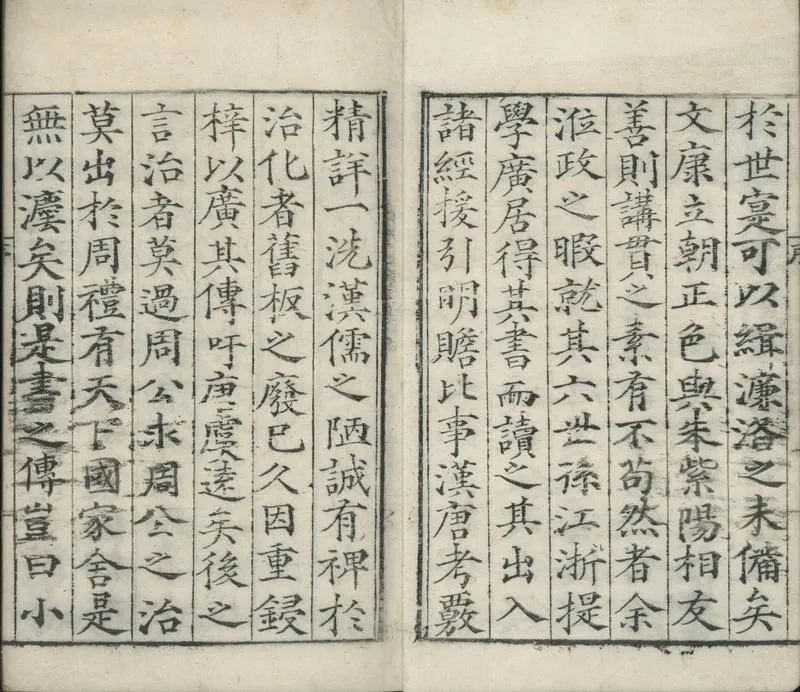 於世寔可以緝濂洛之未備矣
文康立朝正色與朱紫陽相友
善則講貫之素有不苟然者余
涖政之暇就其六世孫江浙提
學廣居得其書而讀之其出入
諸經援引明贍比事漢唐考覈
精詳一洗漢儒之陋誠有裨於
治化者舊板之廢已久因重鋟
梓以廣其傳吁唐虞遠矣後之
言治者莫過周公求周公之治
莫出於周禮有天下國家舍是
無以濅矣則是書之傳豈曰小